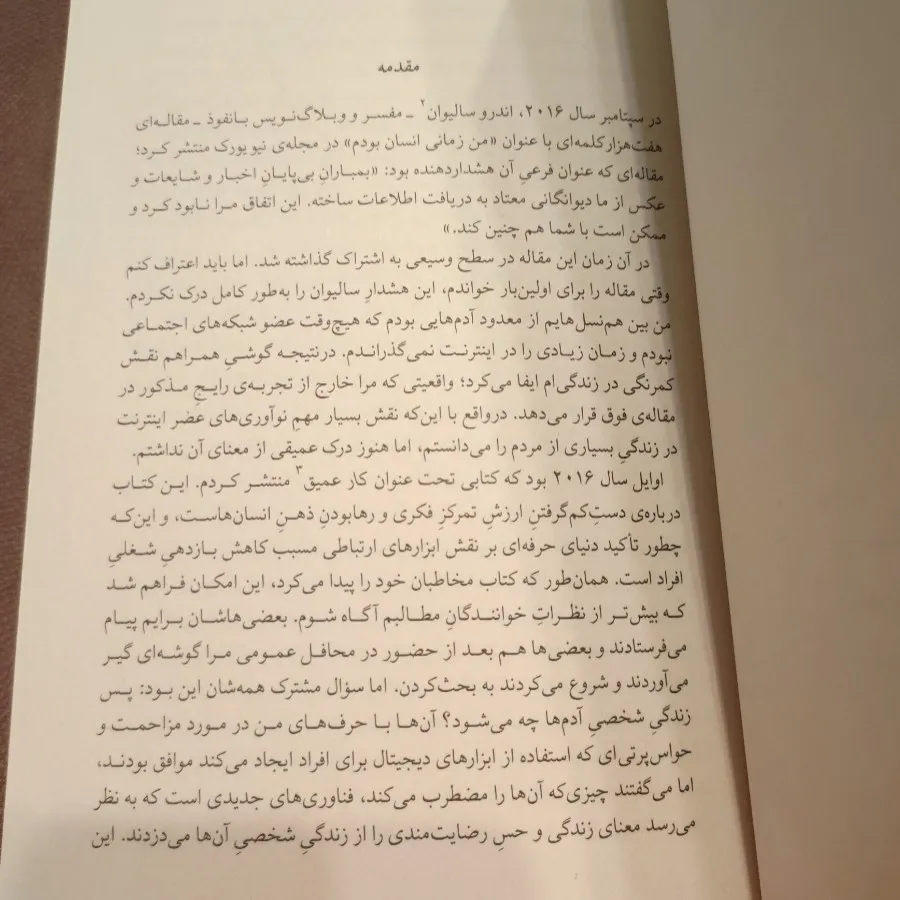 مقدمه
در سپتامبر سال ۲۰۱۶، اندرو سالیوان۲ ـ مفسر و وبلاگ‌نویس بانفوذ ـ مقاله‌ای
هفت‌هزارکلمه‌ای با عنوان «من زمانی انسان بودم» در مجله‌ی نیویورک منتشر کرد؛
مقاله‌ای که عنوان فرعیِ آن هشداردهنده بود: «بمبارانِ بی‌پایانِ اخبار و شایعات و
عکس از ما دیوانگانی معتاد به دریافت اطلاعات ساخته. این اتفاق مرا نابود کرد و
ممکن است با شما هم چنین کند.»
در آن زمان این مقاله در سطح وسیعی به اشتراک گذاشته شد. اما باید اعتراف کنم
وقتی مقاله را برای اولین‌بار خواندم، این هشدارِ سالیوان را به‌طور کامل درک نکردم.
من بین هم‌نسل‌هایم از معدود آدم‌هایی بودم که هیچ‌وقت عضو شبکه‌های اجتماعی
نبودم و زمان زیادی را در اینترنت نمی‌گذراندم. درنتیجه گوشیِ همراهم نقش
کمرنگی در زندگی‌ام ایفا می‌کرد؛ واقعیتی که مرا خارج از تجربه‌ی رایجِ مذکور در
مقاله‌ی فوق قرار می‌دهد. درواقع با این‌که نقش بسیار مهمِ نوآوری‌های عصر اینترنت
در زندگیِ بسیاری از مردم را می‌دانستم، اما هنوز درک عمیقی از معنای آن نداشتم.
اوایل سال ۲۰۱۶ بود که کتابی تحت عنوان کار عمیق۳ منتشر کردم. این کتاب
درباره‌ی دستِ‌کم‌گرفتنِ ارزشِ تمرکزِ فکری و رهابودنِ ذهنِ انسان‌هاست، و این‌که
چطور تأکید دنیای حرفه‌ای بر نقش ابزارهای ارتباطی مسبب کاهش بازدهیِ شغلیِ
افراد است. همان‌طور که کتاب مخاطبان خود را پیدا می‌کرد، این امکان فراهم شد
که بیش‌تر از نظراتِ خوانندگانِ مطالبم آگاه شوم. بعضی‌هاشان برایم پیام
می‌فرستادند و بعضی‌ها هم بعد از حضور در محافل عمومی مرا گوشه‌ای گیر
می‌آوردند و شروع می‌کردند به بحث‌کردن. اما سؤال مشترک همه‌شان این بود: پس
زندگیِ شخصیِ آدم‌ها چه می‌شود؟ آن‌ها با حرف‌های من در مورد مزاحمت و
حواس‌پرتی‌ای که استفاده از ابزارهای دیجیتال برای افراد ایجاد می‌کند موافق بودند،
اما می‌گفتند چیزی‌که آن‌ها را مضطرب می‌کند، فناوری‌های جدیدی است که به نظر
می‌رسد معنای زندگی و حسِ رضایت‌مندی را از زندگیِ شخصیِ آن‌ها می‌دزدند. این